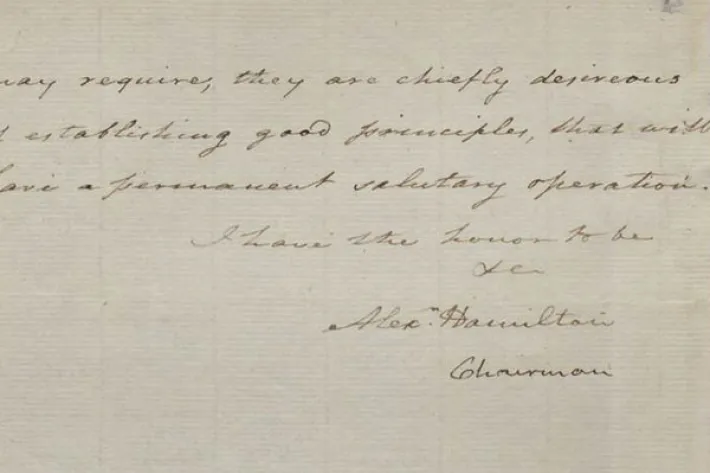 may require, they are chiefly desireous
of establishing good principles, that will
have a permanent salutary operation.
I have the honor to be
&c
Alexr. Hamilton
Chairman